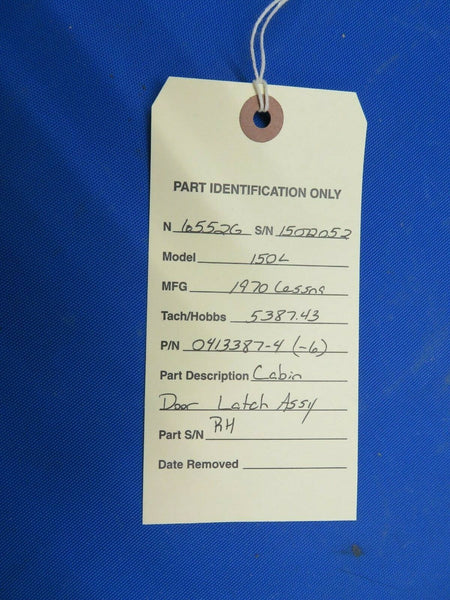 PART IDENTIFICATION ONLY
N 6552G S/N 15072052
Model 150L
MFG 1970 Cessna
Tach/Hobbs 5387.43
P/N 0413387-4 (-6)
Part Description Cabin
Door Latch Assy
Part S/N RH
Date Removed